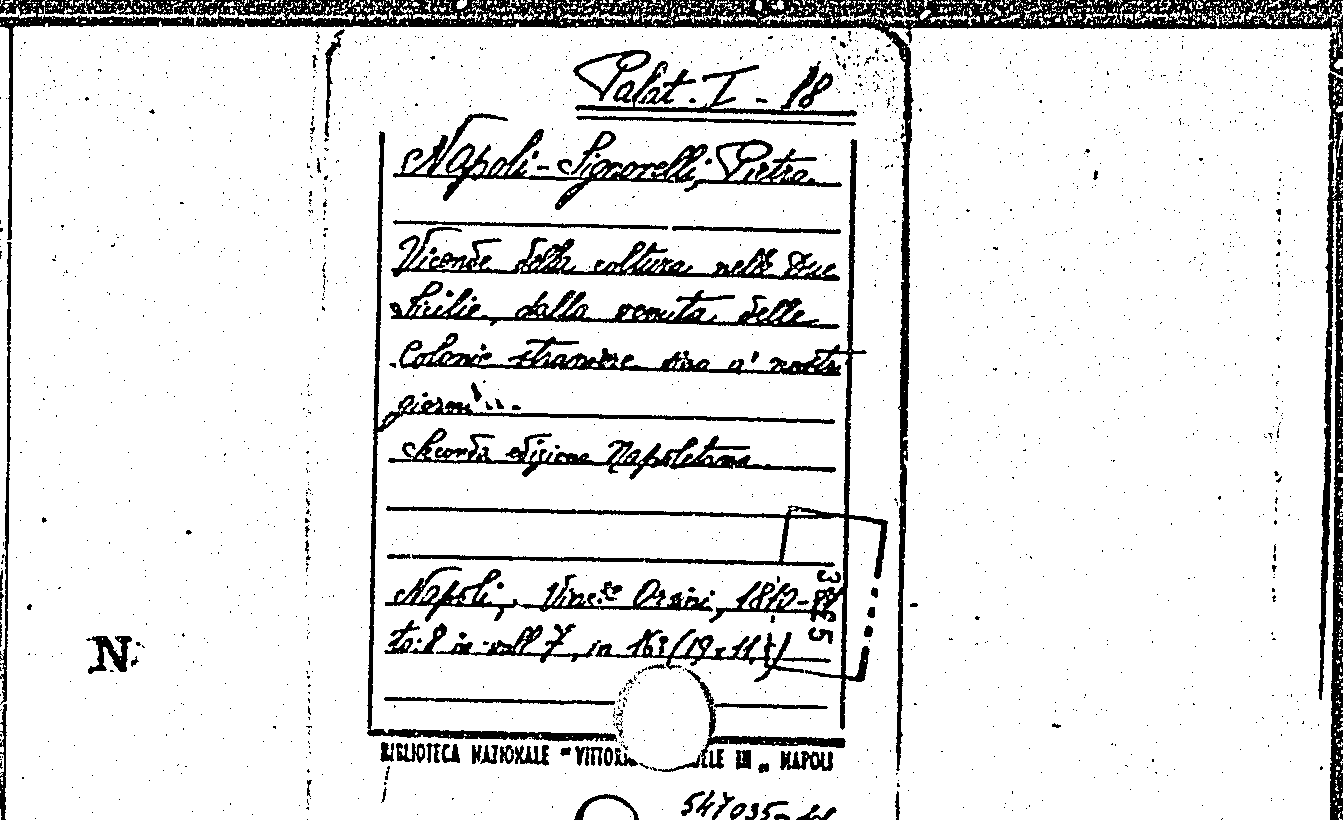 Palat. I - 18
Napoli-Signorelli, Pietro
Vicende della coltura nelle Due
Sicilie, dalla venuta delle
Colonie straniere sino a' nostri
giorni...
Seconda edizione Napoletana
Napoli, Vinc. Orsini, 1810-
to: 8 in voll 7, in 16° (19 x 11,
3825
N
BIBLIOTECA NAZIONALE " NAPOLI
547035